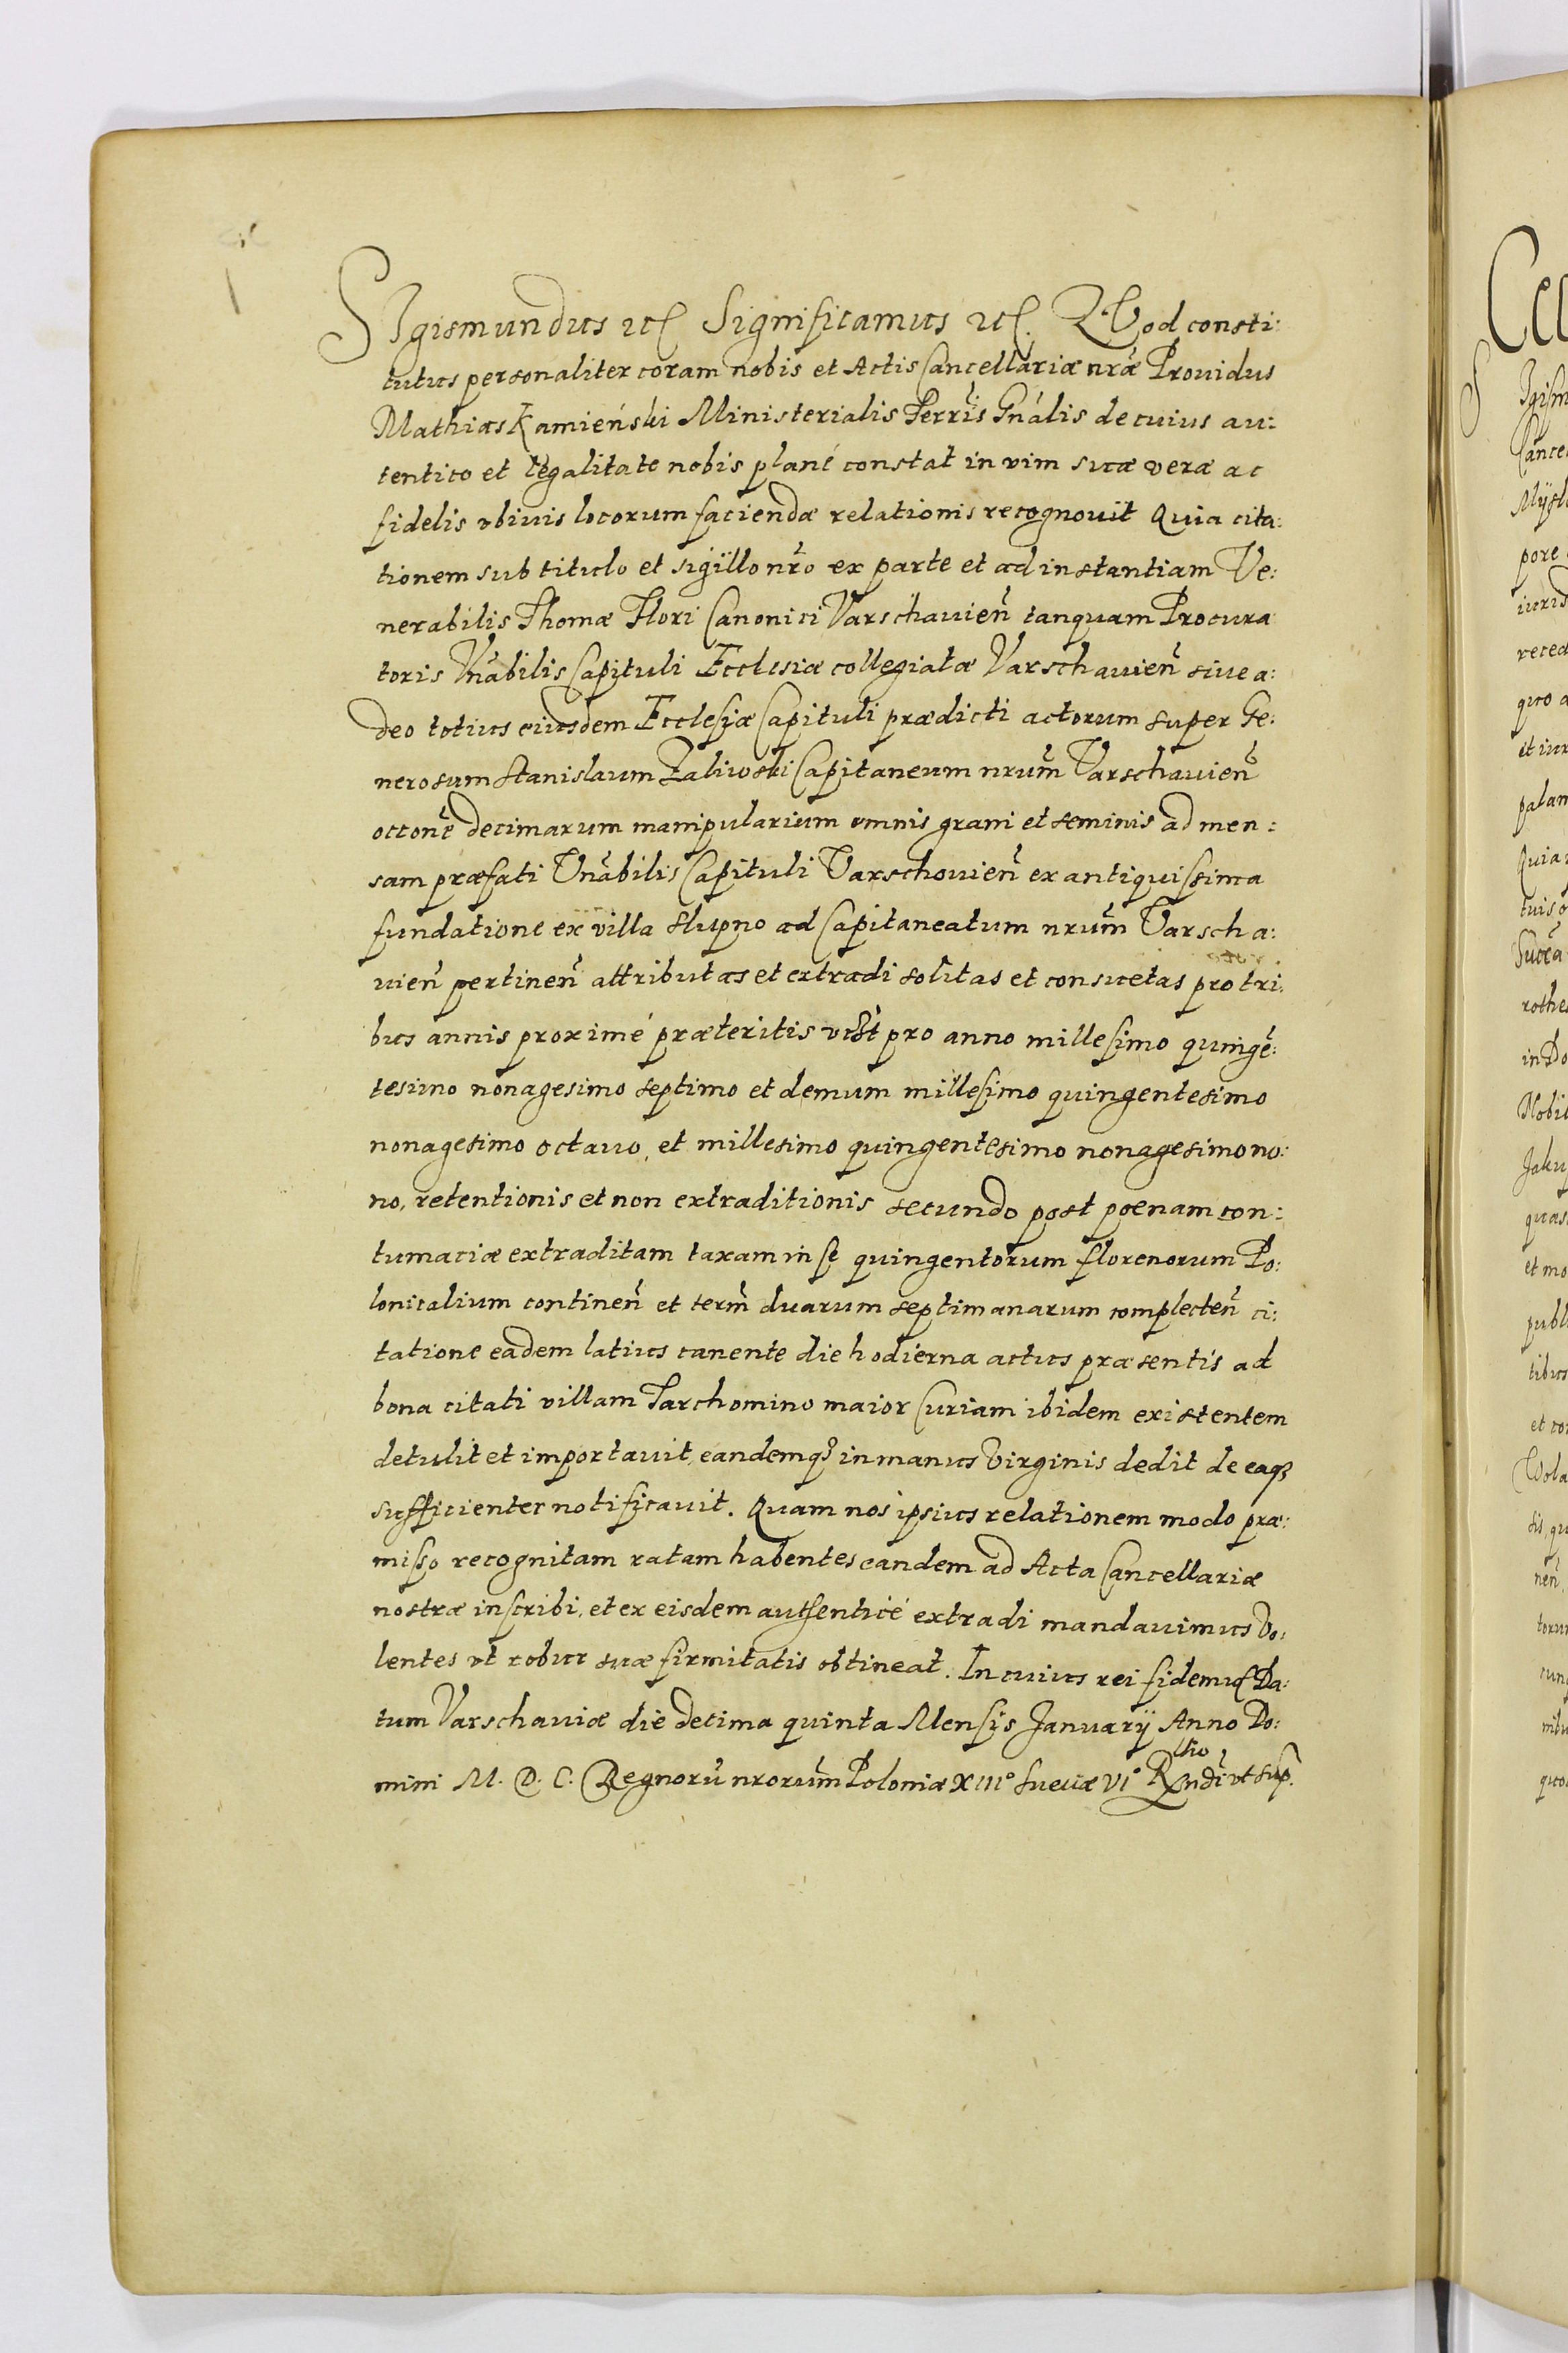 SIgismundus etc Significamus etc. QVod consti:
tutus personaliter coram nobis et Actis Cancellariæ nrãe Prouidus
Mathias Kamieński Ministerialis Terrĩs Gnãlis de cuius au:
tentico et legalitate nobis plané constat in vim suæ veræ ac
fidelis vbiuis locorum faciendæ relationis recognouit Quia cita:
tionem sub titulo et sigillo nrõ ex parte et ad instantiam Ve:
nerabilis Thomæ Flori Canonici Varschauieñ tanquam Procura
toris Vnãbilis Capituli Ecclesiæ collegiatæ Varschauieñ siue a:
deo totius eiusdem Ecclesiæ Capituli prædicti actorum super Ge:
nerosum Stanislaum Zaliwski Capitaneum nrum̃ Varschauieñ
occonẽ decimarum manipularium omnis grani et seminis ad men:
sam præfati Vnãbilis Capituli Varschouieñ ex antiquissima
fundatione ex villa Slupno ad Capitaneatum nrum̃ Varscha:
uieñ pertineñ attributas et extradi solitas et consuetas pro tri:
bus annis proximé præteritis vidt̃ pro anno millesimo quingẽ:
tesimo nonagesimo septimo et demum millesimo quingentesimo
nonagesimo octauo, et millesimo quingentesimo nonagesimo no:
no, retentionis et non extraditionis secundo post poenam con:
tumaciæ extraditam taxam in se quingentorum florenorum Po:
lonicalium contineñ et term̃ duarum septimanarum complecteñ ci:
tatione eadem latius canente die hodierna actus præsentis ad
bona citati villam Tarchomino maior Curiam ibidem existentem
detulit et importauit, eandemqȝ in manus Virginis dedit de eaqȝ
sufficienter notificauit. Quam nos ipsius relationem modo præ:
misso recognitam ratam habentes eandem ad Acta Cancellariæ
nostræ inscribi, et ex eisdem authenticé extradi mandauimus Vo:
lentes vt robur suæ firmitatis obtineat. In cuius rei fidem etc Da:
tum Varschauiæ die decima quinta Mensis Januarij Anno Do:
mini M. D. C. Regnorũ nrorum̃ Poloniæ XIII° Sueciæ VI° Rndĩ vt sup̃.